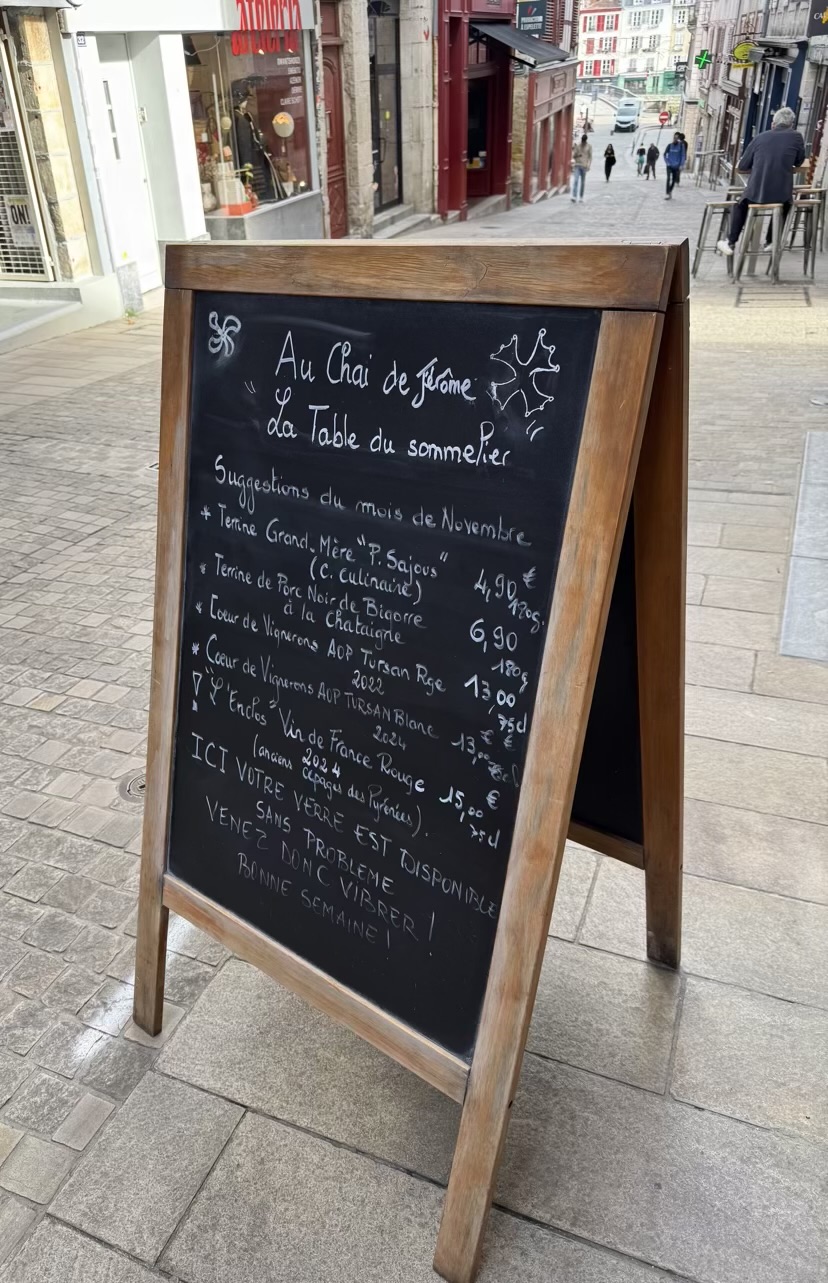 Au Chai de Jérôme
"La Table du sommelier"
Suggestions du mois de Novembre
* Terrine Grand-Mère "P. Sajous"
(C. Culinaire) 4,90 €
180g.
* Terrine de Porc Noir de Bigorre
à la Chataigne 6,90
180g
* Coeur de Vignerons AOP Tursan Rge
2022 13,00
75cl
€
* Coeur de Vignerons AOP TURSAN Blanc
2024 13,00 €
! "L'Enclos" Vin de France Rouge
2024 15,00 €
(anciens cépages des Pyrénées). 75cl
ICI VOTRE VERRE EST DISPONIBLE
SANS PROBLEME
VENEZ DONC VIBRER !
BONNE SEMAINE !
ON!